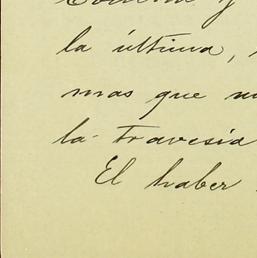 y
la última,
mas que
la travesía
El haber